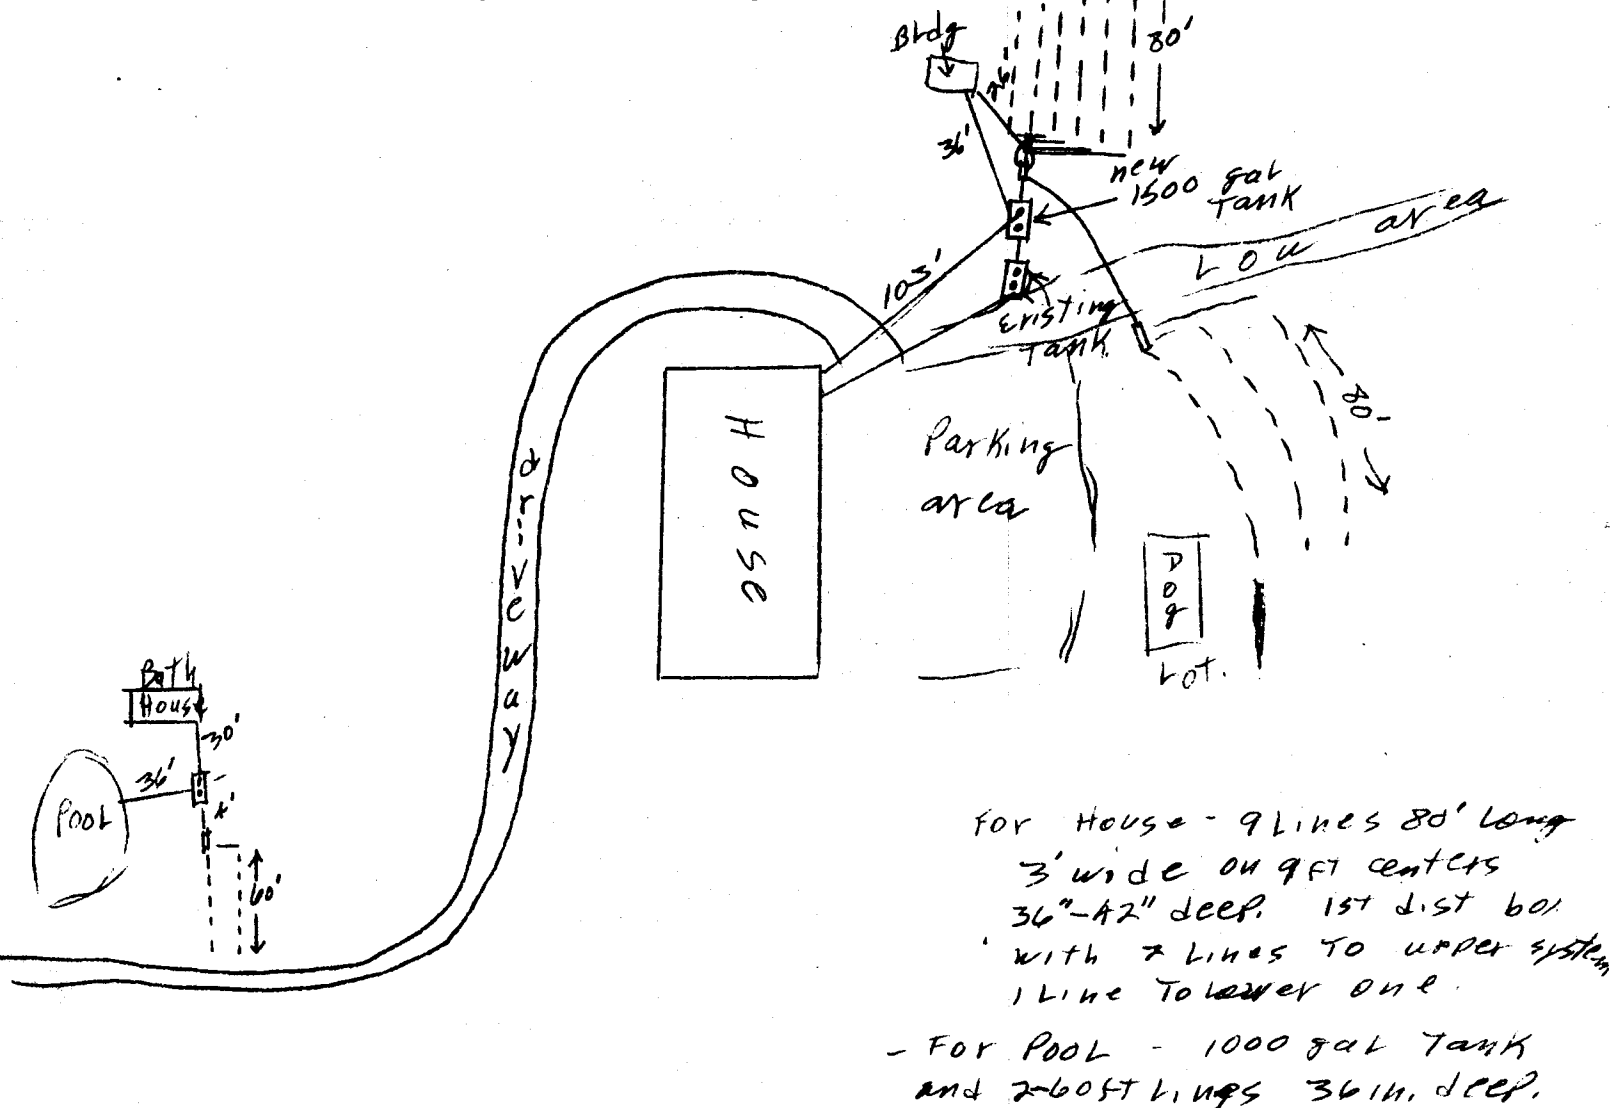 Bldg
80'
26'
36'
new
1500 gal
Tank
Low area
103'
Existing
Tank
80'
House
Parking
area
driveway
Dog
Lot.
Bath
House
30'
36'
Pool
4'
60'
For House - 9 Lines 80' Long
3' wide on 9 FT centers
36"-42" deep. 1st dist box
with 2 Lines To upper system
1 Line To Lower one.
- For Pool - 1000 gal Tank
and 2-60ft Lines 36 in. deep.